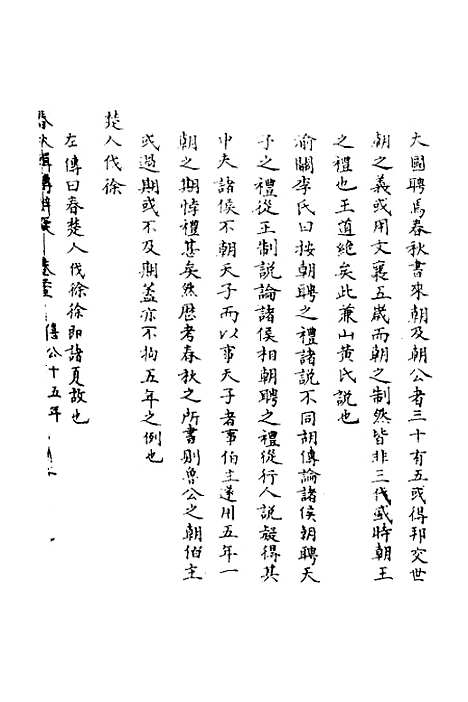 大國聘焉春秋書來朝及朝公者三十有五或得邦交世
朝之義或用文襄五歲而朝之制然皆非三代盛時朝王
之禮也王道絶矣此兼山黄氏說也
渝關李氏曰按朝聘之禮諸說不同胡傳論諸侯朝聘天
子之禮從王制說論諸侯相朝聘之禮從行人說疑得其
中夫諸侯不朝天子而以事天子者事伯主遂用五年一
朝之期悖禮甚矣然歷考春秋之所書則魯公之朝伯主
或過期或不及期蓋亦不拘五年之例也
楚人伐徐
左傳曰春楚人伐徐徐即諸夏故也
春秋輯傳辨疑 僖公十五年